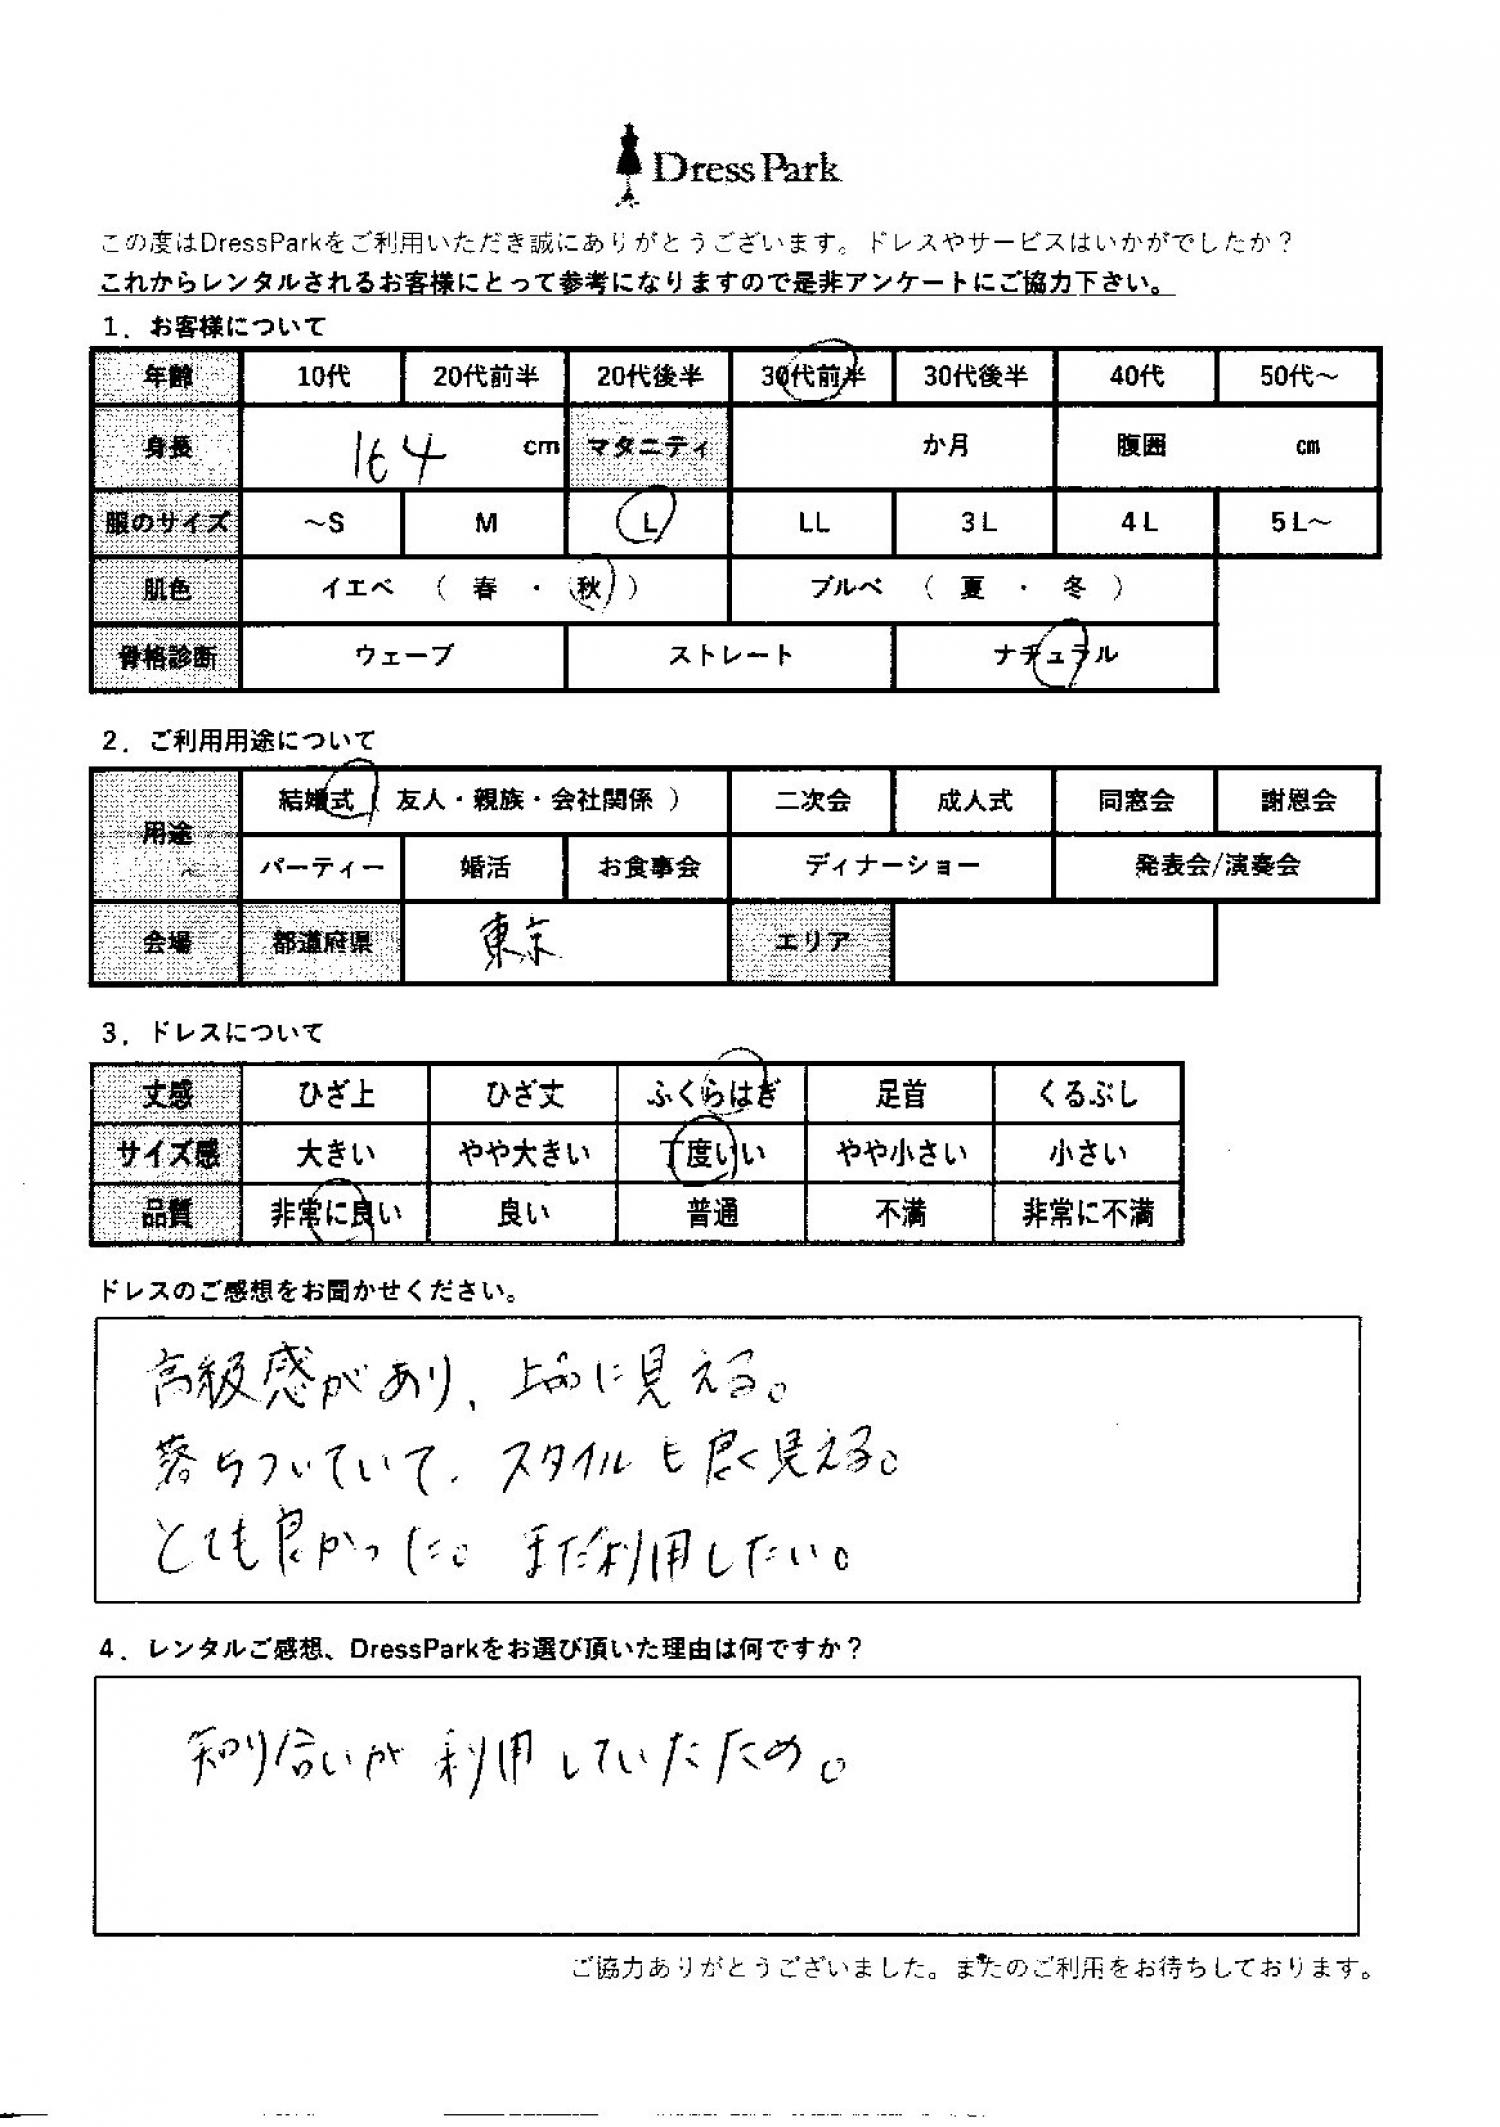 Dress Park
この度はDressParkをご利用いただき誠にありがとうございます。ドレスやサービスはいかがでしたか？
これからレンタルされるお客様にとって参考になりますので是非アンケートにご協力下さい。
1．お客様について
年齢 10代 20代前半 20代後半 30代前半 30代後半 40代 50代～
身長 164 cm マタニティ か月 腹囲 cm
服のサイズ ～S M L LL 3L 4L 5L～
肌色 イエベ （ 春 ・ 秋 ） ブルベ （ 夏 ・ 冬 ）
骨格診断 ウェーブ ストレート ナチュラル
2．ご利用用途について
用途 結婚式（ 友人・親族・会社関係 ） 二次会 成人式 同窓会 謝恩会
パーティー 婚活 お食事会 ディナーショー 発表会/演奏会
会場 都道府県 東京 エリア
3．ドレスについて
丈感 ひざ上 ひざ丈 ふくらはぎ 足首 くるぶし
サイズ感 大きい やや大きい 丁度いい やや小さい 小さい
品質 非常に良い 良い 普通 不満 非常に不満
ドレスのご感想をお聞かせください。
高級感があり、上品に見える。
落ちついていて、スタイルも良く見える。
とても良かった。また利用したい。
4．レンタルご感想、DressParkをお選び頂いた理由は何ですか？
知り合いが利用していたため。
ご協力ありがとうございました。またのご利用をお待ちしております。